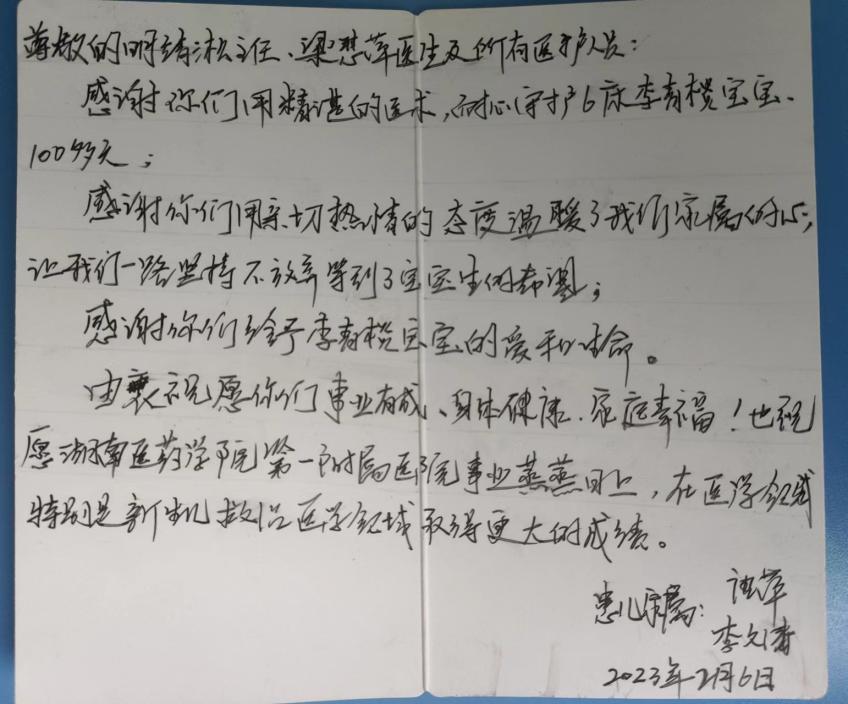 尊敬的明绪淞主任、梁慧萍医生及所有医护人员：
感谢你们用精湛的医术，耐心守护6床李青榄宝宝、
100多天；
感谢你们用亲切热情的态度温暖了我们家属的心，
让我们一路坚持不放弃等到了宝宝生的希望；
感谢你们给予李青榄宝宝的爱和生命。
由衷祝愿你们事业有成、身体健康、家庭幸福！也祝
愿湖南医药学院第一附属医院事业蒸蒸日上，在医学领域
特别是新生儿救治医学领域取得更大的成绩。
患儿家属：
李
2023年2月6日